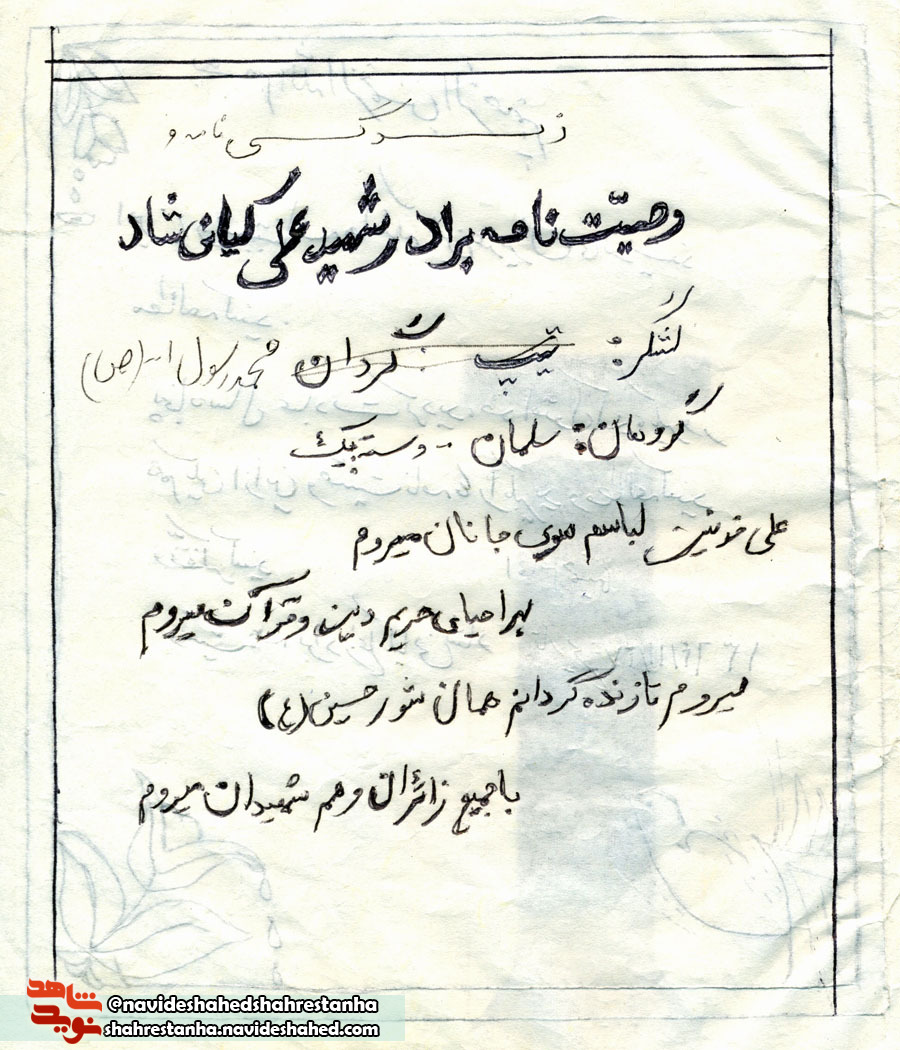 زندگی نامه و
وصیّت نامه برادر شهید علی کیانی شاد
لشگر: تیپ گردان محمد رسول الله (ص)
گروهان: سلمان - دسته یک
علی خونین لباسم سوی جانان میروم
بهر احیای حریم دین و قرآن میروم
میروم تا زنده گردانم همان شور حسین (ع)
با جمیع زائران و هم شهیدان میروم
شاهد
نوید
@navideshahedshahrestanha
shahrestanha.navideshahed.com